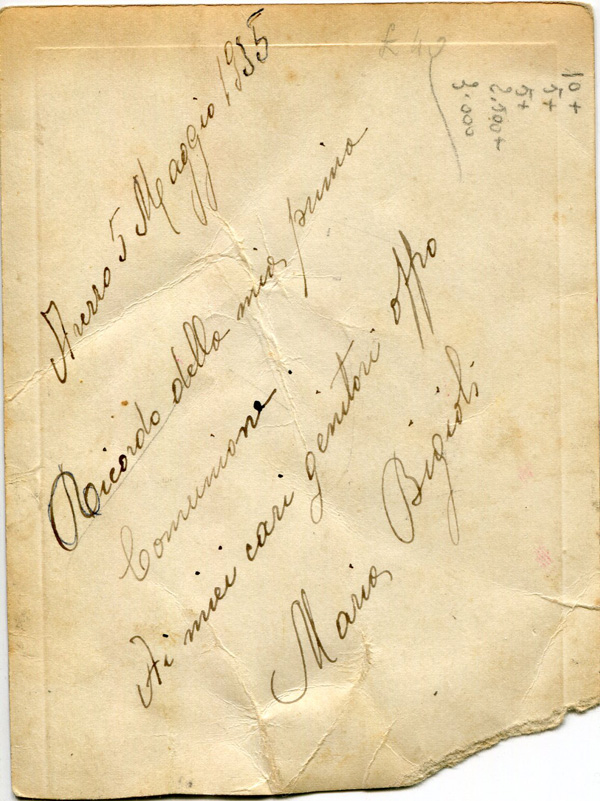 Arezzo 5 Maggio 1935
Ricordo della mia prima
Comunione.
Ai miei cari genitori offro
Maria Bigioli
£ 40
10+
5+
2.500+
5+
3.000